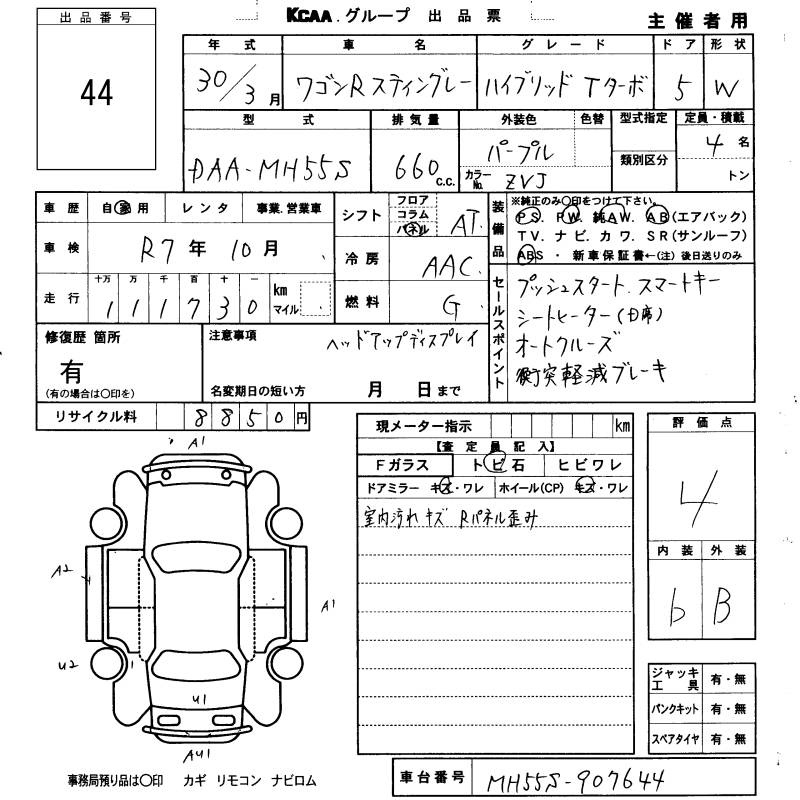 KCAA グループ 出品票
主催者用
出品番号
44
年式 車名 グレード ドア 形状
30/3月 ワゴンR スティングレー ハイブリッド Tターボ 5 W
型式 排気量 外装色 色替 型式指定 定員・積載
DAA-MH55S 660 C.C. パープル 4 名
カラーNo. ZVJ 類別区分 トン
車歴 自家用 レンタ 事業.営業車
車検 R7年 10月
走行 十万 万 千 百 十 一 km マイル
1 1 1 7 3 0
シフト フロア コラム パネル AT
冷房 AAC
燃料 G
装備品 ※純正のみ○印をつけて下さい。
PS. PW. 純AW. AB(エアバック)
TV. ナビ. カワ. SR(サンルーフ)
ABS ・ 新車保証書←(注) 後日送りのみ
セールスポイント
プッシュスタート. スマートキー
シートヒーター(D席)
オートクルーズ
衝突軽減ブレーキ
修復歴 箇所
有
(有の場合は○印を)
注意事項 ヘッドアップディスプレイ
名変期日の短い方 月 日まで
リサイクル料 8 8 5 0 円
現メーター指示 km
【査定員記入】
Fガラス トビ石 ヒビワレ
ドアミラー キズ・ワレ ホイール(CP) キズ・ワレ
室内汚れキズ Rパネル歪み
評価点
4
内装 外装
b B
ジャッキ工具 有・無
パンクキット 有・無
スペアタイヤ 有・無
A1
A2
A1
U2
U1
AU1
事務局預り品は○印 カギ リモコン ナビロム
車台番号 MH55S-907644